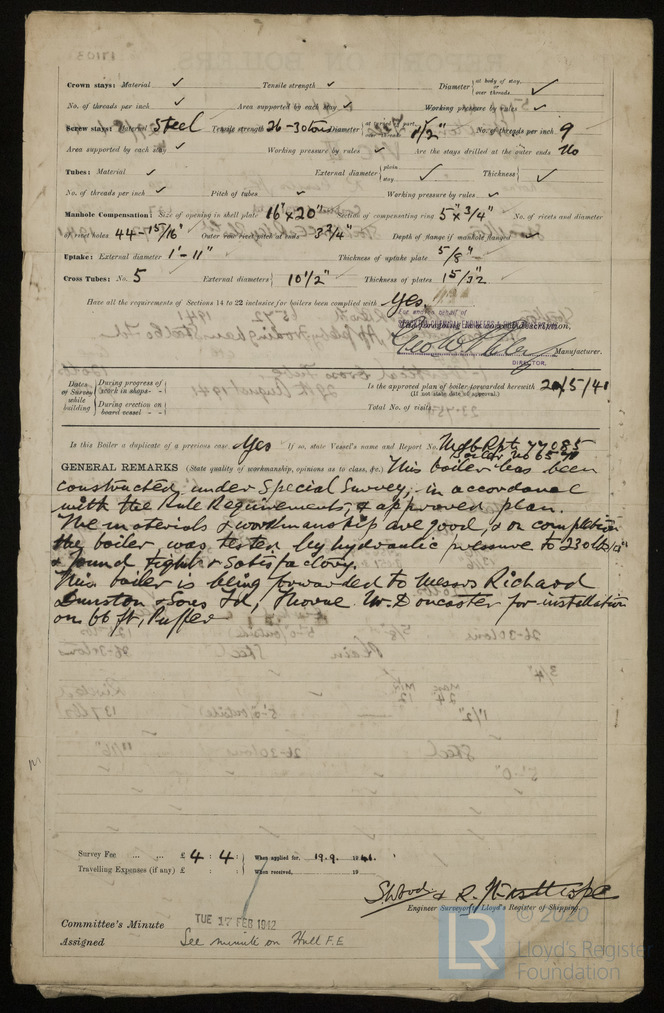 Crown stays: Material ✓ Tensile strength ✓ Diameter { at body of stay, or over threads ✓
No. of threads per inch ✓ Area supported by each stay ✓ Working pressure by rules ✓
Screw stays: Material Steel Tensile strength 26-30 tons Diameter 1 1/2" No. of threads per inch 9
Area supported by each stay ✓ Working pressure by rules ✓ Are the stays drilled at the outer ends No
Tubes: Material ✓ External diameter { plain stay ✓ Thickness { ✓
No. of threads per inch ✓ Pitch of tubes ✓ Working pressure by rules ✓
Manhole Compensation: Size of opening in shell plate 16" x 20" Section of compensating ring 5" x 3/4" No. of rivets and diameter
of rivet holes 44 - 15/16" Outer row rivet pitch at ends 3 3/4" Depth of flange if manhole flanged ✓
Uptake: External diameter 1'-11" Thickness of uptake plate 5/8"
Cross Tubes: No. 5 External diameters { 10 1/2" Thickness of plates 15/32"
Have all the requirements of Sections 14 to 22 inclusive for boilers been complied with Yes.
For and on behalf of
The foregoing is a correct description,
Manufacturer.
DIRECTOR.
Dates of Survey while building { During progress of work in shops - - { During erection on board vessel - - -
Is the approved plan of boiler forwarded herewith 20/5/41
(If not state date of approval.)
Total No. of visits
Is this Boiler a duplicate of a previous case Yes If so, state Vessel's name and Report No. Mdb Rpt. 77085
Boiler No 6570
GENERAL REMARKS (State quality of workmanship, opinions as to class, &c.) This boiler has been
constructed under Special Survey, in accordance
with the Rule Requirements, & approved plan.
The materials & workmanship are good, & on completion
the boiler was tested by hydraulic pressure to 230 lbs/□"
& found tight & satisfactory.
This boiler is being forwarded to Messrs Richard
Dunston & Sons Ld, Thorne Nr. Doncaster for installation
on 66 ft, Puffer
Survey Fee ... ... £ 4 : 4 : When applied for, 19.9. 1941.
Travelling Expenses (if any) £ : : When received, 19
Engineer Surveyor to Lloyd's Register of Shipping.
Committee's Minute TUE 17 FEB 1942
Assigned See minute on Hull F.E
© 2020
LR
Lloyd's Register
Foundation